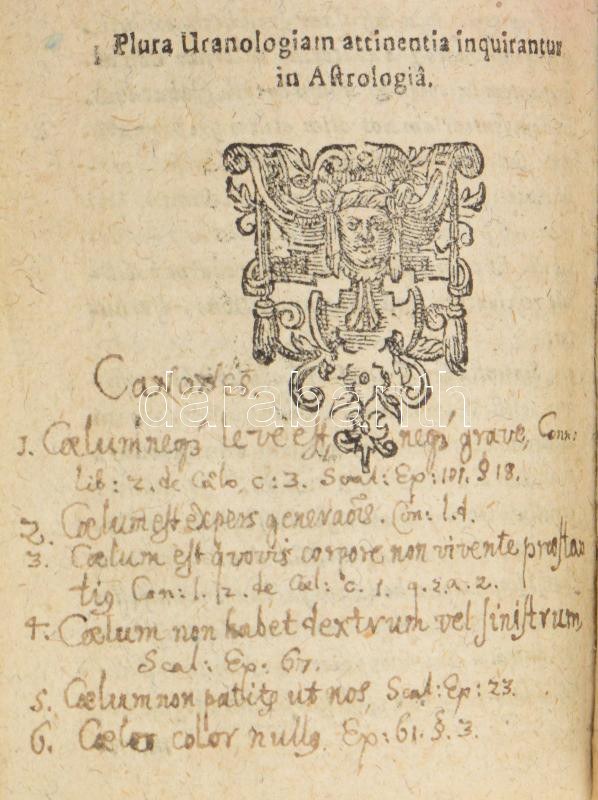 Plura Uranologiam attinentia inquirantur
in Aſtrologiâ.
Canones.
1. Cœlum neqꝫ leve eſt, neqꝫ grave, Con:
lib: 2. de Cœlo, c: 3. Scal: Ep: 101. § 18.
2. Cœlum eſt expers generaõis. Con: l. 1.
3. Cœlum eſt quovis corpore non vivente præſtan
tiꝯ Con: l. 2. de Cœl: c. 1. q. 2. a. 2.
4. Cœlum non habet dextrum vel ſiniſtrum,
Scal: Ep: 67.
5. Cœlum non patitꝛ ut nos, Scal: Ep: 23.
6. Cœlo color nullꝯ. Ep: 61. §. 3.
darabanth